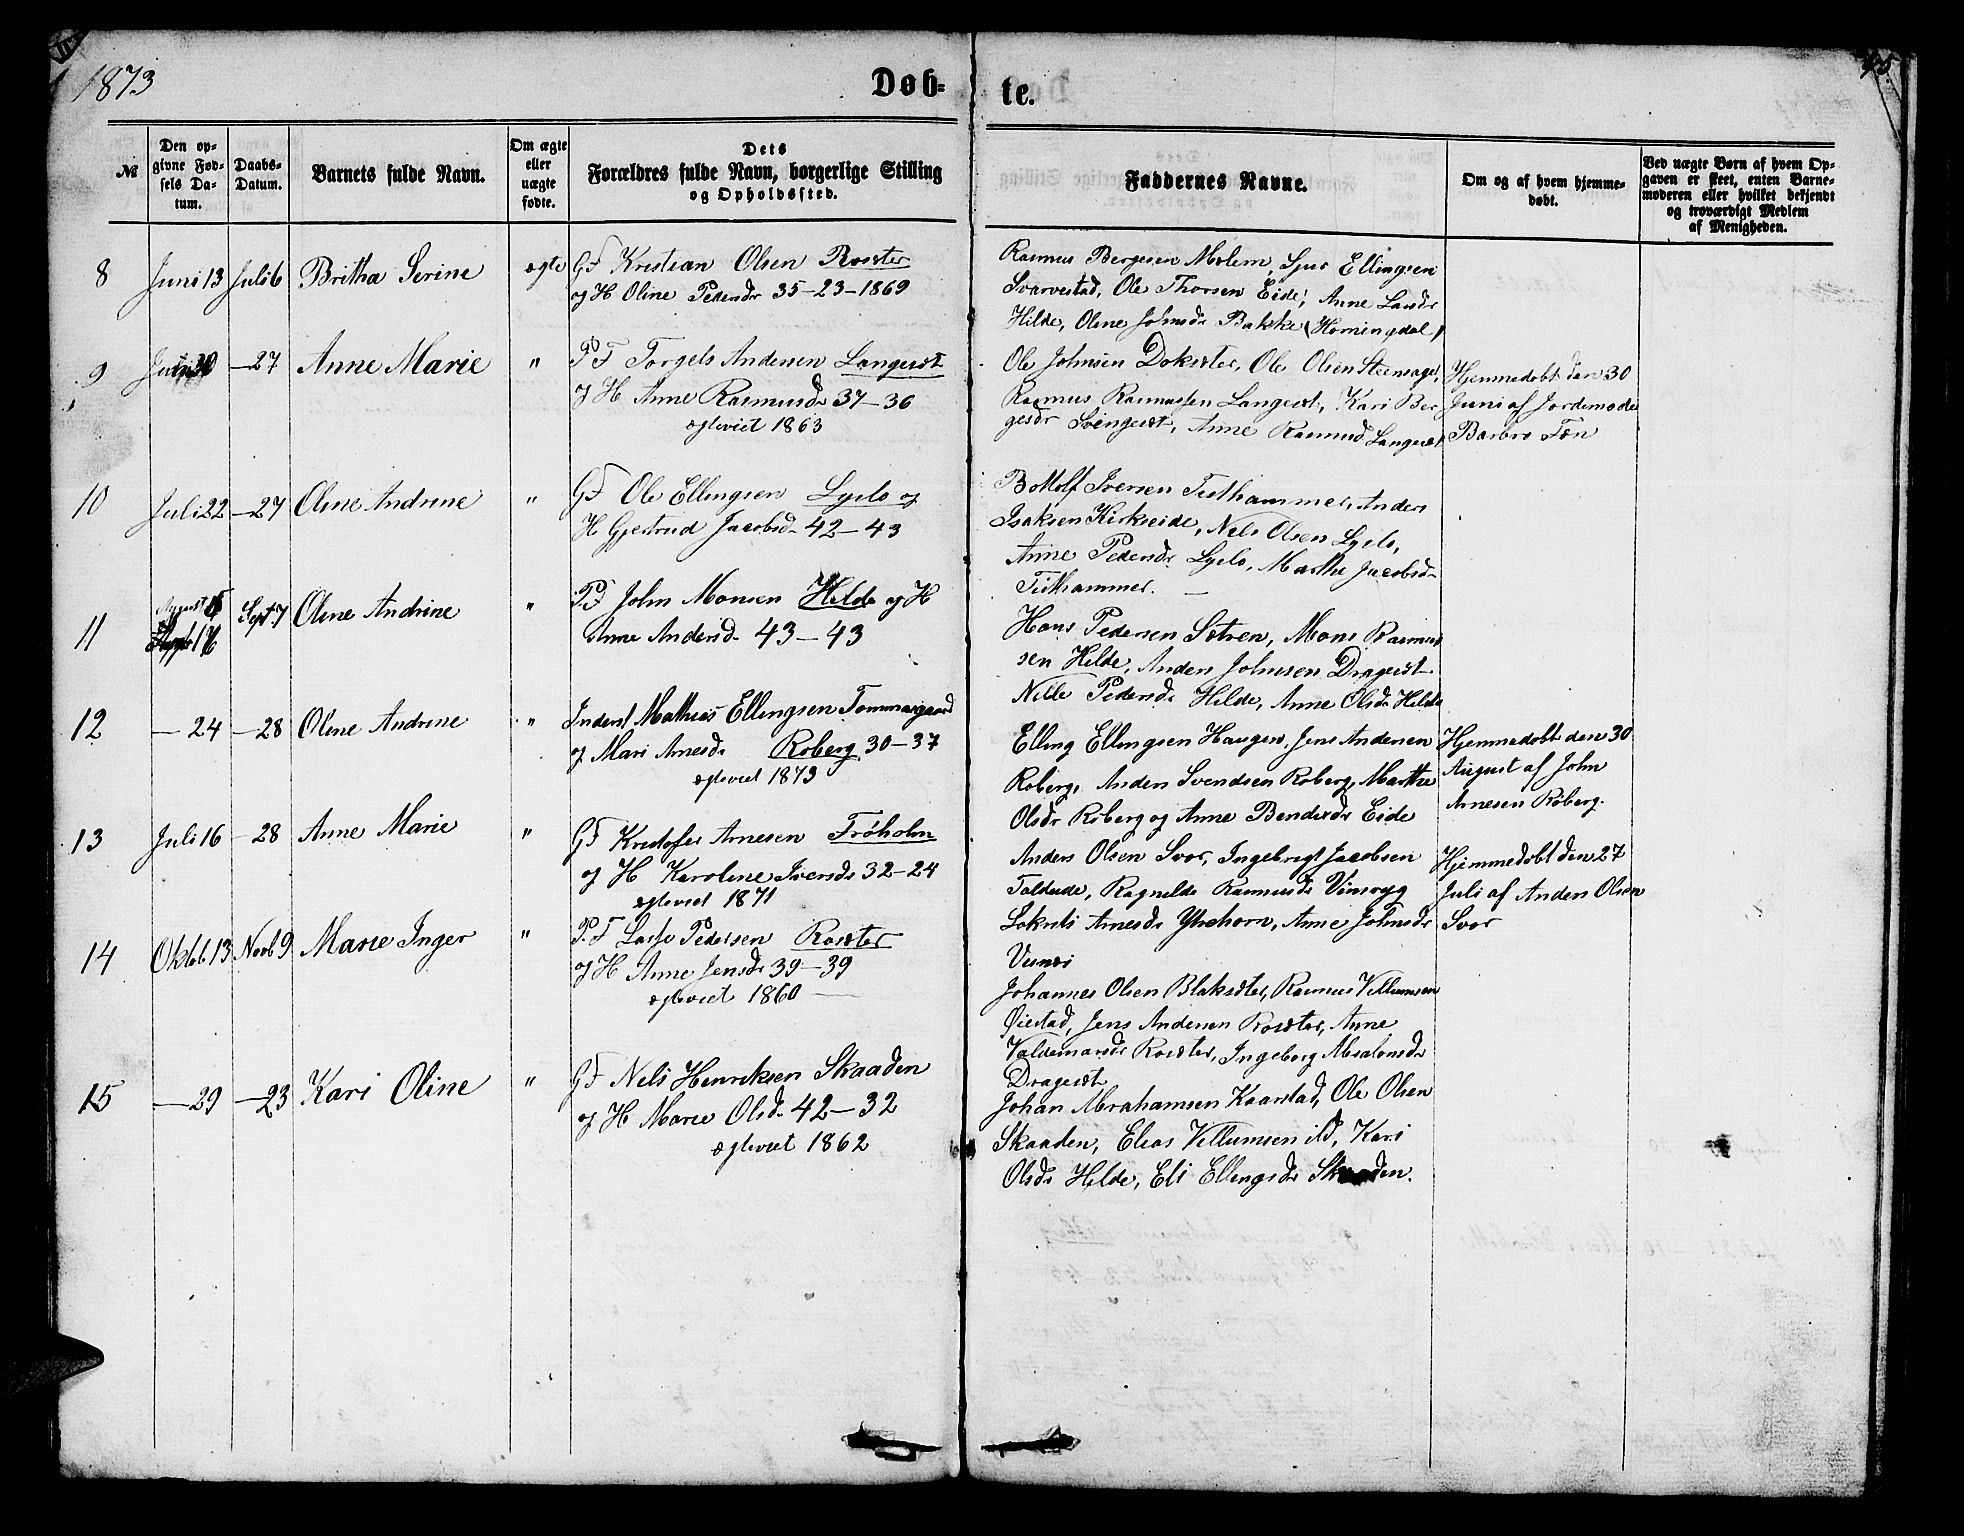 1873
Døb=
te.
№
Den op-
givne Fød-
sels Da-
tum.
Daabs-
Datum.
Barnets fulde Navn.
Om ægte
eller
uægte
fødte.
Dets
Forældres fulde Navn, borgerlige Stilling
og Opholdssted.
Faddernes Navne.
Om og af hvem hjemme-
døbt.
Ved uægte Børn af hvem Op-
gaven er skeet, enten Barne-
moderen eller hvilket bekjendt
og troværdigt Medlem
af Menigheden.
8 Juni 13 Juli 6 Britha Serine ægte GF Kristian Olsen Roseter
og H Oline Pedersdr 35-23-1869
Rasmus Bergesen Molem, Sjur Ellingsen
Svarvestad, Ole Thorsen Eide, Anne Larsdr
Hilde, Oline Johnsdr Bakke (Horningdal)
9 -27 Anne Marie " PF Torgels Andersen Langesæt
og H Anne Rasmusdr 37-36
ægteviet 1863
Ole Johnsen Dokseter, Ole Olsen
Rasmus Rasmussen Langesæt, Kari Ber
gesdr Svingesæt, Anne Rasmusd Langesæt
Hjemmedøbt den 30
Juni af Jordemoder
Barbro Tøn
10 Juli 22 -27 Oline Andrine " GF Ole Ellingsen Lyslo og
H Gjertrud Jacobsd. 42-43
Bottolf Iversen Tisthammer, Anders
Isaksen Kirkeeide, Nils Olsen Lyslo,
Anne Pedersdr Lyslo, Marthe Jacobsd-
Tisthammer.
11 August 15 Sept. 7 Oline Andrine " PF John Monsen Hilde og H
Anne Andersd. 43-43
Hans Pedersen Sætren, Mons Rasmus
sen Hilde, Anders Johnsen Dragesæt
Nille Pedersdr Hilde, Anne Olsdr Hilde
12 -24 -28 Oline Andrine " Inderst Mathias Ellingsen Tommasgaard
og Mari Arnesdr Roberg 30-37
ægteviet 1873
Elling Ellingsen Haugen, Jens Andersen
Roberg, Anders Svendsen Roberg, Marthe
Olsdr Roberg og Anne Bendixdr Eide
Hjemmedøbt den 30
August af John
Arnesen Roberg.
13 Juli 16 -28 Anne Marie " GF Kristofer Arnesen Frøholm
og H Karoline Iversdr 32-24
ægteviet 1871
Anders Olsen Svor, Ingebrigt Jacobsen
Taldude, Ragnilde Rasmusdr Vinsryg
Arnesdr Ytrehorn, Anne Johnsdr
Hjemmedøbt den 27
Juli af Anders Olsen
Svor
14 Oktob 13 Novb 9 Marie Inger " P.F Lasse Pedersen Roseter
og H Anne Jensdr 39-39
ægteviet 1860
Johannes Olsen Blakseter, Rasmus Villumsen
Øiestad, Jens Andersen Roseter, Anne
Valdemarsdr Roseter, Ingeborg Absalonsdr
Dragesæt
15 -29 -23 Kari Oline " GF Nels Henriksen Skaaden
og H Marie Olsd. 42-32
ægteviet 1862
Johan Abrahamsen Kaarstad, Ole Olsen
Skaaden, Elias Villumsen ibd, Kari
Olsdr Hilde, Eli Ellingsdr Skaaden.